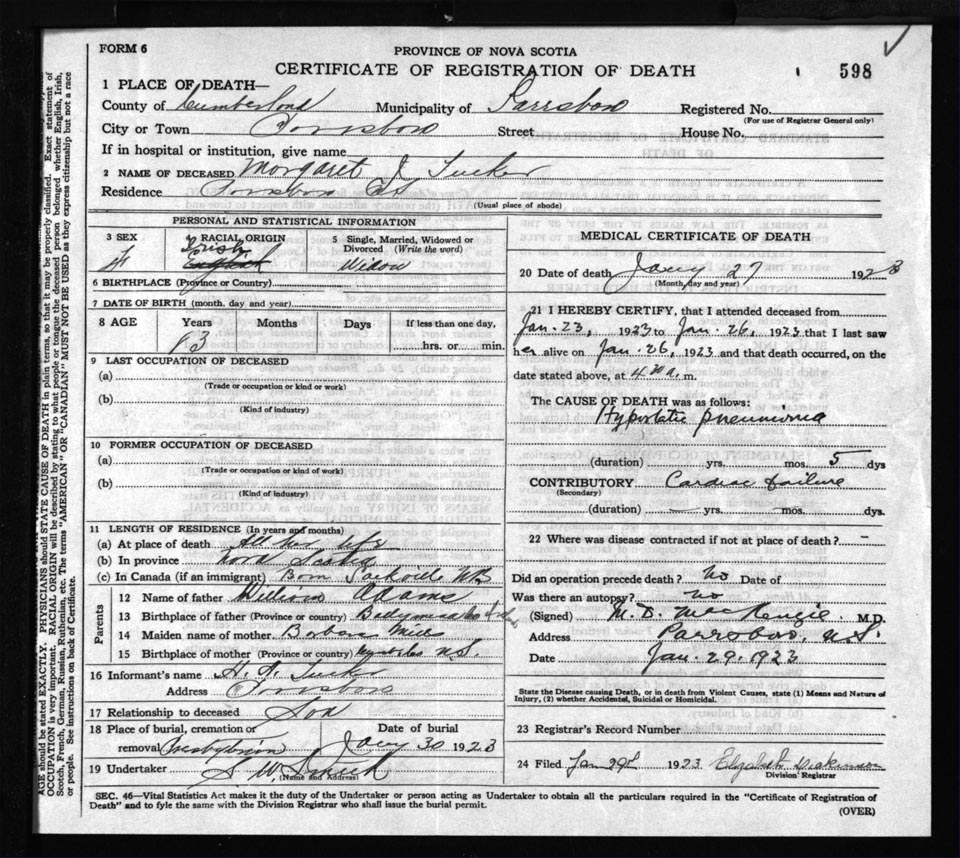 FORM 6
PROVINCE OF NOVA SCOTIA
CERTIFICATE OF REGISTRATION OF DEATH
598
1 PLACE OF DEATH—
County of Cumberland Municipality of Parrsboro Registered No.
(For use of Registrar General only)
City or Town Parrsboro Street House No.
If in hospital or institution, give name
2 NAME OF DECEASED Margaret J. Tucker
Residence Parrsboro
(Usual place of abode)
PERSONAL AND STATISTICAL INFORMATION
3 SEX
4 RACIAL ORIGIN
5 Single, Married, Widowed or Divorced (Write the word)
f Irish English Widow
6 BIRTHPLACE (Province or Country)
7 DATE OF BIRTH (month, day and year)
8 AGE Years Months Days If less than one day,
hrs. or min.
9 LAST OCCUPATION OF DECEASED
(a)
(Trade or occupation or kind or work)
(b)
(Kind of industry)
10 FORMER OCCUPATION OF DECEASED
(a)
(Trade or occupation or kind of work)
(b)
(Kind of industry)
11 LENGTH OF RESIDENCE (In years and months)
(a) At place of death All her life
(b) In province Nova Scotia
(c) In Canada (if an immigrant) Born Sackville NB
Parents
12 Name of father William Adams
13 Birthplace of father (Province or Country)
14 Maiden name of mother Barbara Mills
15 Birthplace of mother (Province or country) N.S.
16 Informant's name Tucker
Address Parrsboro
17 Relationship to deceased Son
18 Place of burial, cremation or removal Presbyterian
Date of burial Jany 30 1923
19 Undertaker
(Name and Address)
MEDICAL CERTIFICATE OF DEATH
20 Date of death Jany 27 1923
(Month, day and year)
21 I HEREBY CERTIFY, that I attended deceased from
Jan. 23, 1923 to Jan. 26, 1923 that I last saw
her alive on Jan. 26, 1923 and that death occurred, on the
date stated above, at 4 a. m.
The CAUSE OF DEATH was as follows:
Hypostatic pneumonia
(duration) yrs. mos. 5 dys
CONTRIBUTORY Cardiac failure
(Secondary)
(duration) — yrs. — mos. dys.
22 Where was disease contracted if not at place of death? —
Did an operation precede death? No Date of
Was there an autopsy? no
(Signed) M. D. MacKenzie M.D.
Address Parrsboro, N.S.
Date Jan. 29. 1923
State the Disease causing Death, or in death from Violent Causes, state (1) Means and Nature of
Injury, (2) whether Accidental, Suicidal or Homicidal.
23 Registrar's Record Number
24 Filed Jan 29th 1923 Elizabeth Dickinson
Division Registrar
SEC. 46—Vital Statistics Act makes it the duty of the Undertaker or person acting as Undertaker to obtain all the particulars required in the "Certificate of Registration of
Death" and to fyle the same with the Division Registrar who shall issue the burial permit.
(OVER)
AGE should be stated EXACTLY. PHYSICIANS should STATE CAUSE OF DEATH in plain terms, so that it may be properly classified. Exact statement of
OCCUPATION is very important. RACIAL ORIGIN will be described by stating to what people or tongue the deceased person belonged whether English, Irish,
Scotch, French, German, Russian, Ruthenian, etc. The terms "AMERICAN" OR "CANADIAN" MUST NOT BE USED as they express citizenship but not a race
or people. See instructions on back of Certificate.